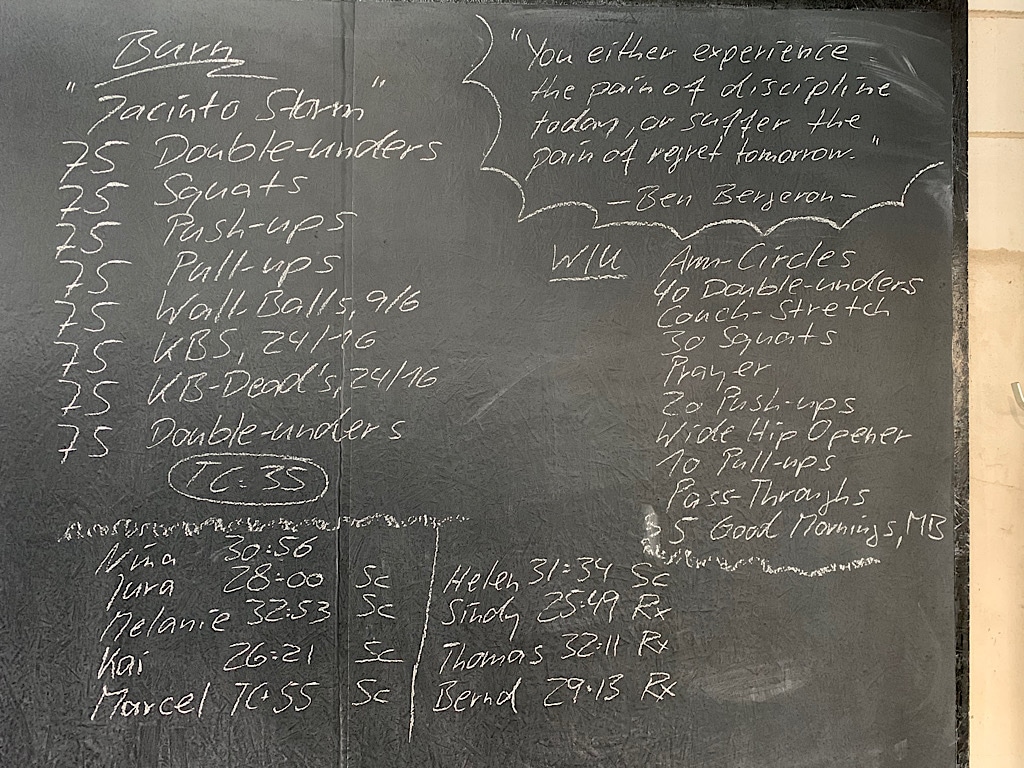 Burn
"Jacinto Storm"
75 Double-unders
75 Squats
75 Push-ups
75 Pull-ups
75 Wall-Balls, 9/6
75 KBS, 24/16
75 KB-Dead's, 24/16
75 Double-unders
TC: 35
"You either experience
the pain of discipline
today, or suffer the
pain of regret tomorrow."
- Ben Bergeron -
W/U Arm-Circles
40 Double-unders
Couch-Stretch
30 Squats
Prayer
20 Push-ups
Wide Hip Opener
10 Pull-ups
Pass-Throughs
5 Good Mornings, MB
Nina 30:56
Jura 28:00 Sc
Melanie 32:53 Sc
Kai 26:21 Sc
Marcel TC:55 Sc
Helen 31:34 Sc
Sindy 25:49 Rx
Thomas 32:11 Rx
Bernd 29:13 Rx